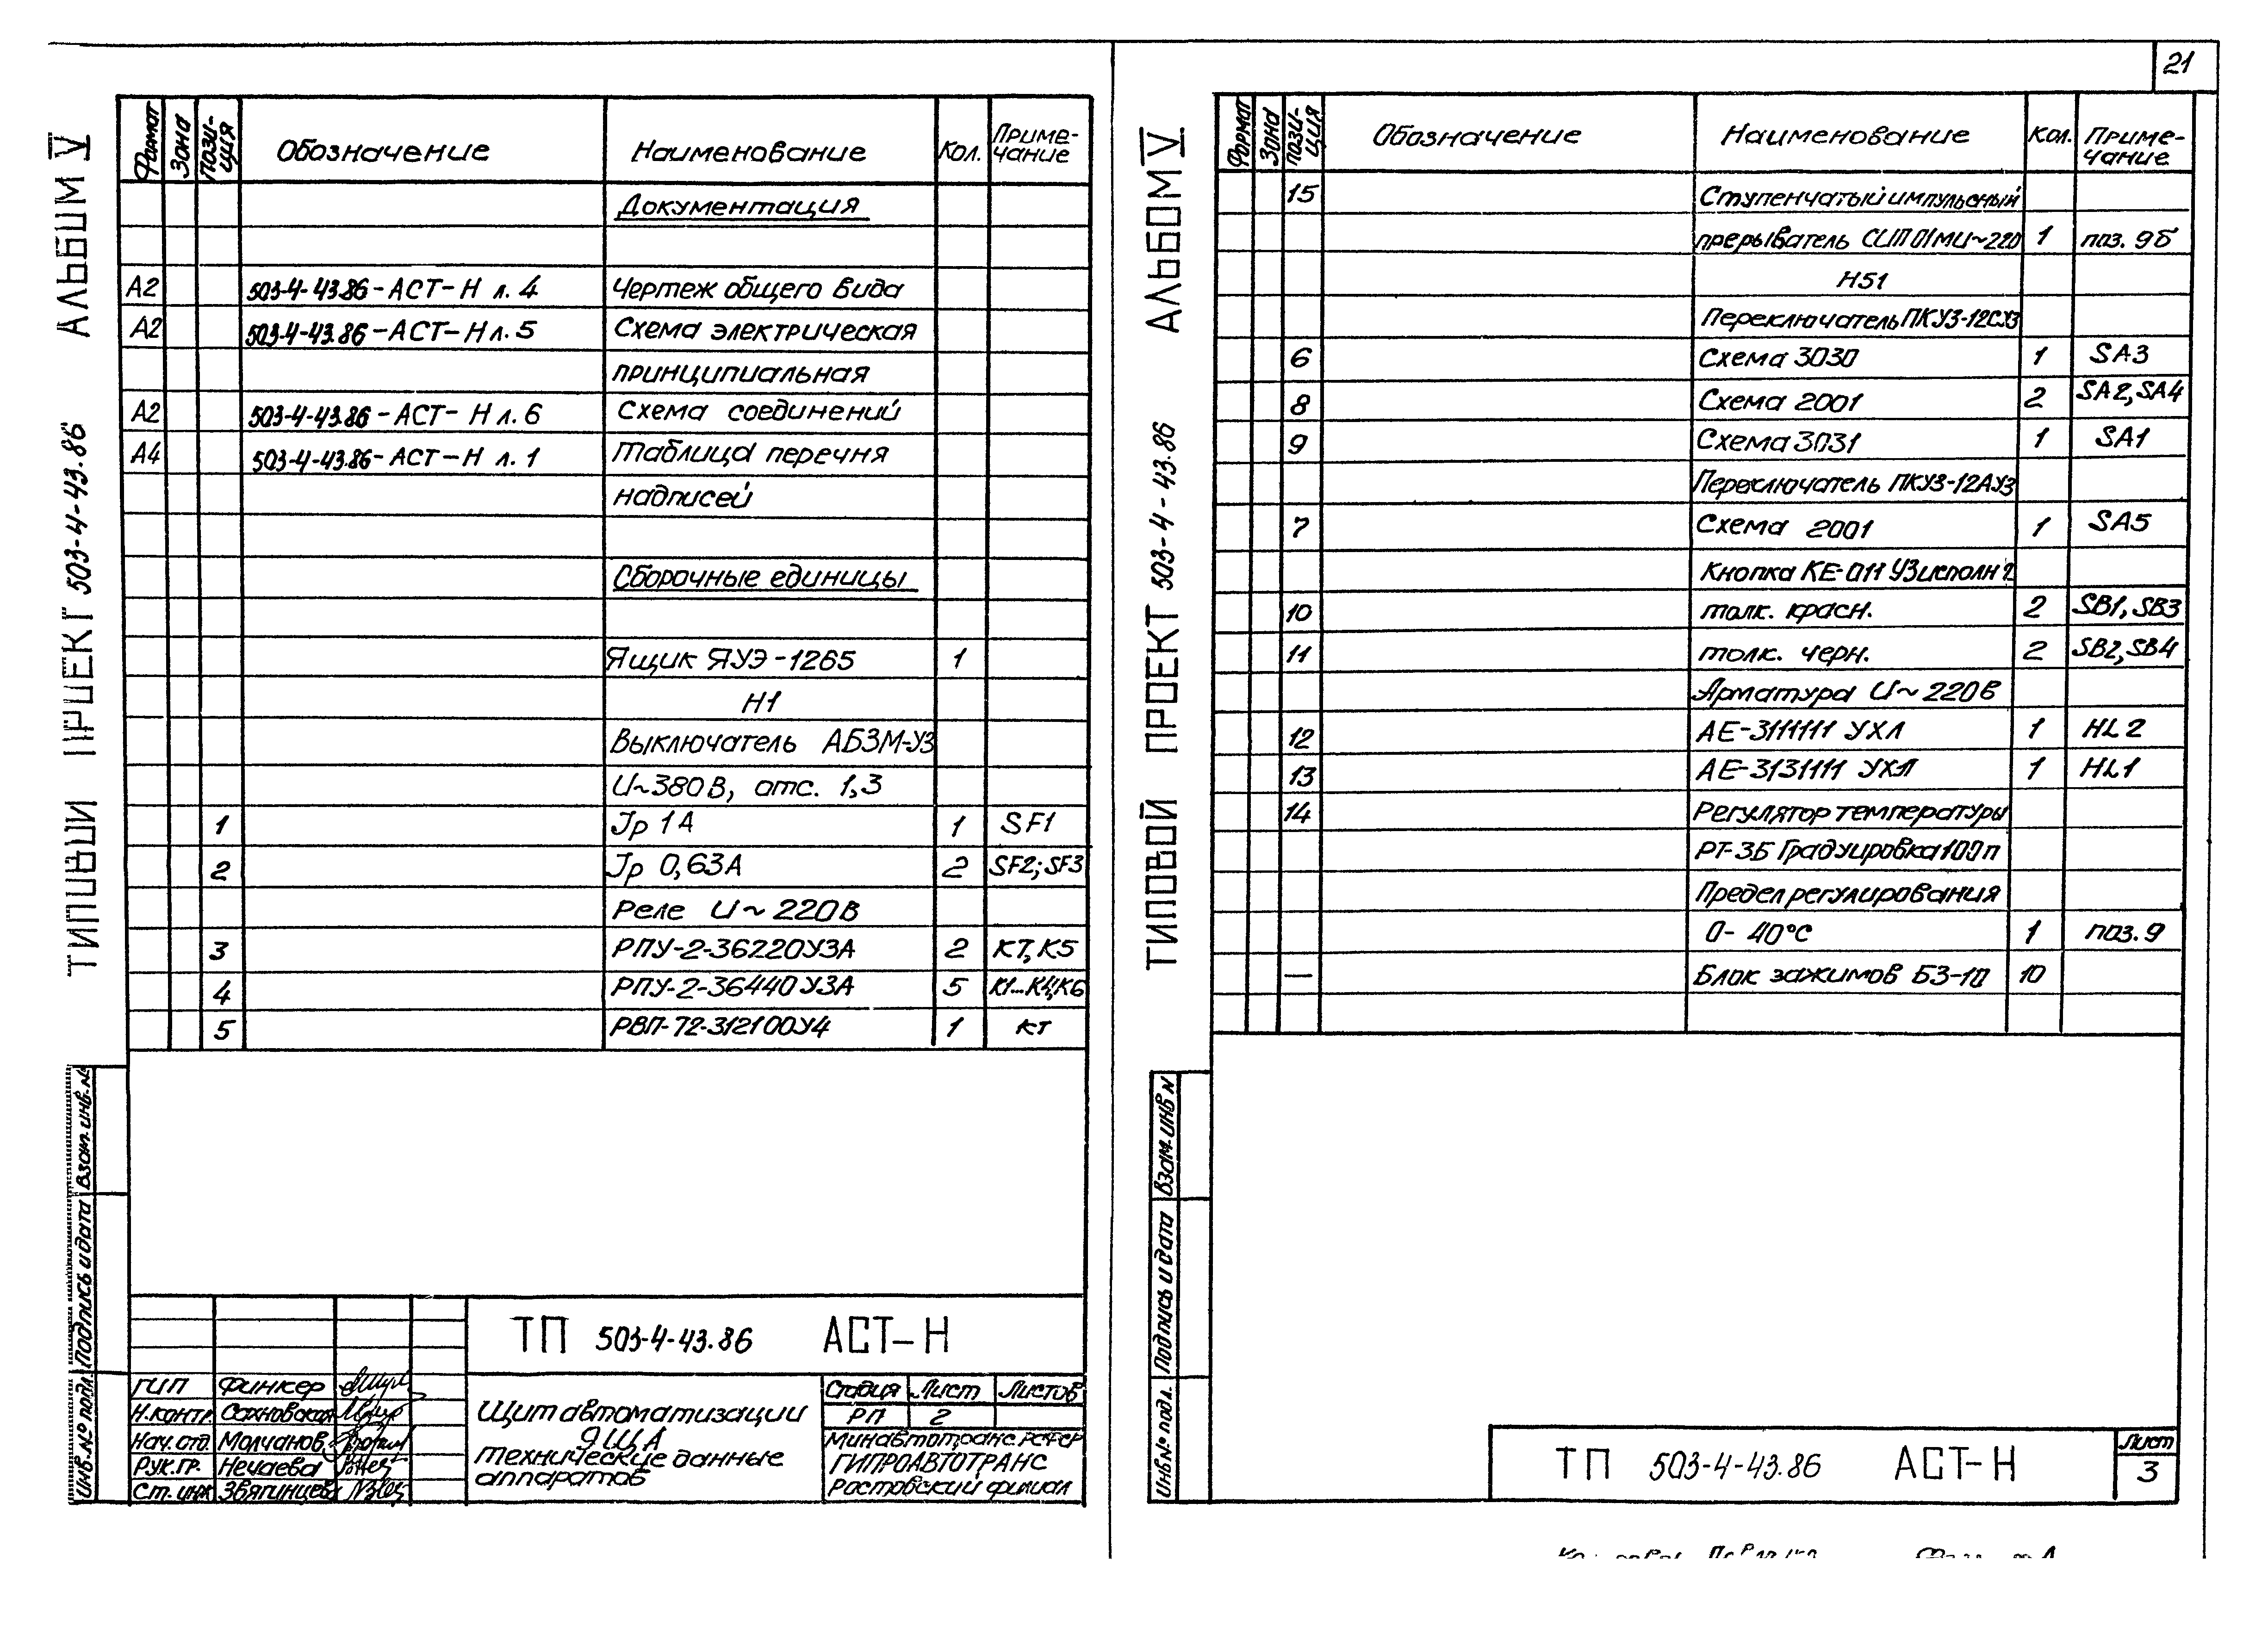 21
АЛЬБОМ V
ТИПОВОЙ ПРОЕКТ 503-4-43.86
Формат Зона Пози-ция Обозначение Наименование Кол. Приме-чание
Документация
А2 503-4-43.86-АСТ-Н л. 4 Чертеж общего вида
А2 503-4-43.86-АСТ-Н л. 5 Схема электрическая
принципиальная
А2 503-4-43.86-АСТ-Н л. 6 Схема соединений
А4 503-4-43.86-АСТ-Н л. 1 Таблица перечня
надписей
Сборочные единицы
Ящик ЯУЭ-1265 1
Н1
Выключатель АБ3М-У3
U~380В, отс. 1,3
1 Jр 1А 1 SF1
2 Jр 0,63А 2 SF2; SF3
Реле U~220В
3 РПУ-2-36220У3А 2 К7, К5
4 РПУ-2-36440У3А 5 К1...К4, К6
5 РВП-72-312100У4 1 КТ
Взам. инв. №
Подпись и дата
Инв. № подл.
ТП 503-4-43.86 АСТ-Н
ГИП Финкер
Н.контр. Сахновская
Нач. отд. Молчанов
Рук.гр. Нечаева
Ст. инж Звягинцева
Щит автоматизации
ЯЩА
Технические данные
аппаратов
Стадия Лист Листов
РП 2
Минавтотранс РСФСР
ГИПРОАВТОТРАНС
Ростовский филиал
АЛЬБОМ V
ТИПОВОЙ ПРОЕКТ 503-4-43.86
Формат Зона Пози-ция Обозначение Наименование Кол. Приме-чание
15 Ступенчатый импульсный
прерыватель СИП01М U~220 1 поз. 9б
Н51
Переключатель ПКУ3-12СУ3
6 Схема 3030 1 SA3
8 Схема 2001 2 SA2, SA4
9 Схема 3031 1 SA1
Переключатель ПКУ3-12АУ3
7 Схема 2001 1 SA5
Кнопка КЕ-011 У3 исполн 2
10 толк. красн. 2 SB1, SB3
11 толк. черн. 2 SB2, SB4
Арматура U~220В
12 АЕ-3111111 УХЛ 1 HL2
13 АЕ-3131111 УХЛ 1 HL1
14 Регулятор температуры
РТ-3Б Градуировка 100п
Предел регулирования
0-40°С 1 поз. 9
— Блок зажимов БЗ-10 10
Взам. инв №
Подпись и дата
Инв № подл.
ТП 503-4-43.86 АСТ-Н
Лист
3